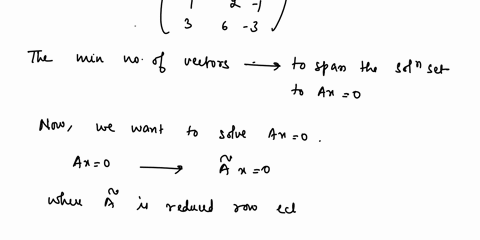 1 2 -1
3 6 -3
The min no. of vectors ⟶ to span the solⁿ set
to Ax=0
Now, we want to solve Ax=0.
Ax=0 ⟶ Ã x=0
where Ã is reduced row ecl